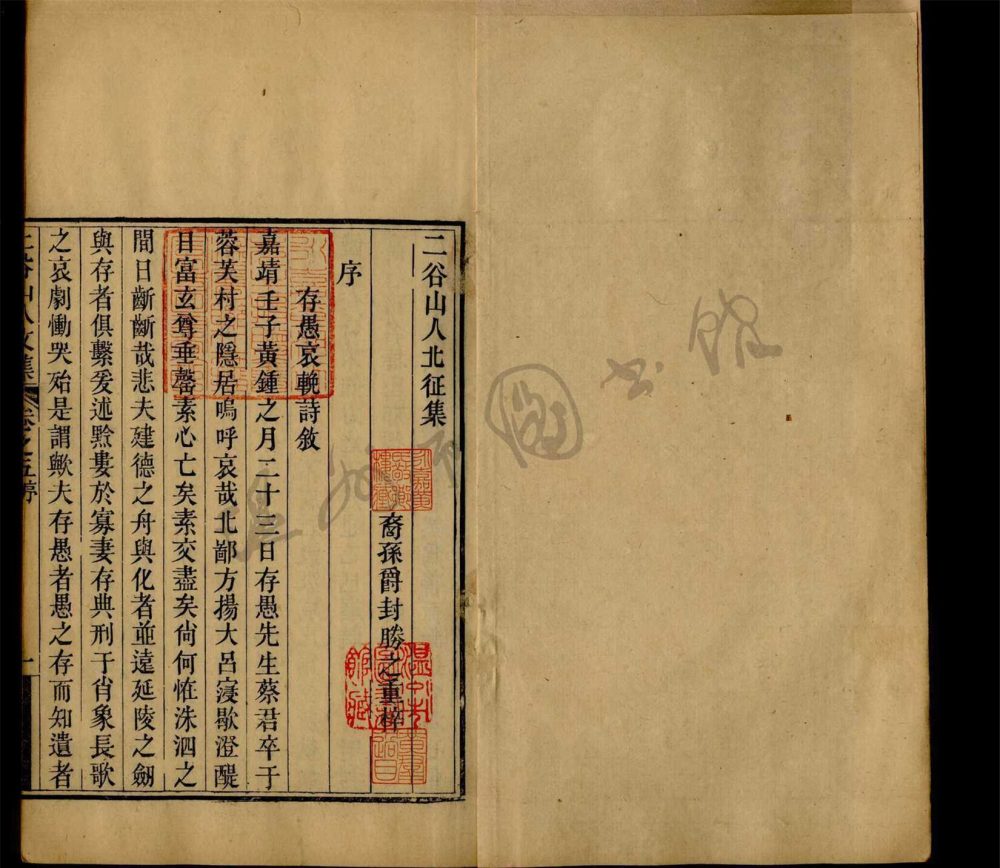 二谷山人北征集
裔孫爵封勝之重梓
序
存愚哀輓詩敘
嘉靖壬子黃鍾之月二十三日存愚先生蔡君卒于
蓉芙村之隱居嗚呼哀哉北鄙方揚大呂寖歇澄醍
日富玄尊垂罄素心亡矣素交盡矣尙何恠洙泗之
間日齗齗哉悲夫建德之舟與化者並遠延陵之劒
與存者俱繫爰述黔婁於寡妻存典刑于肖象長歌
之哀劇慟哭殆是謂歟夫存愚者愚之存而知遺者
二谷山人文集
卷之五序
一
溫州市圖書館